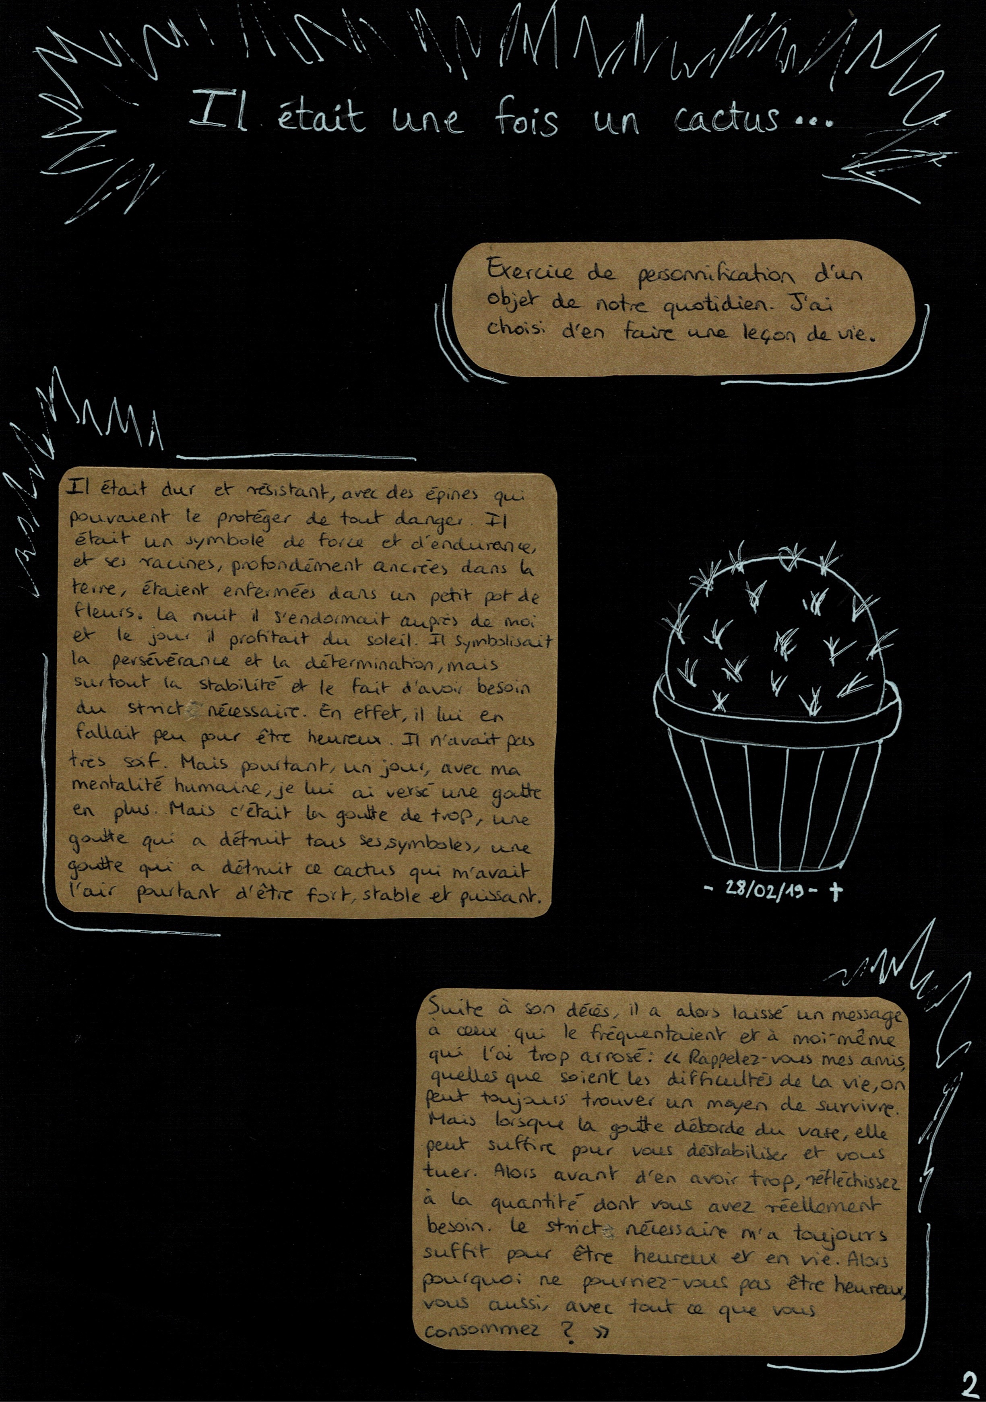 Il était une fois un cactus...
Exercice de personnification d'un
objet de notre quotidien. J'ai
choisi d'en faire une leçon de vie.
Il était dur et résistant, avec des épines qui
pouvaient le protéger de tout danger. Il
était un symbole de force et d'endurance,
et ses racines, profondément ancrées dans la
terre, étaient enfermées dans un petit pot de
fleurs. La nuit il s'endormait auprès de moi
et le jour il profitait du soleil. Il symbolisait
la persévérance et la détermination, mais
surtout la stabilité et le fait d'avoir besoin
du strict nécessaire. En effet, il lui en
fallait peu pour être heureux. Il n'avait pas
très soif. Mais pourtant, un jour, avec ma
mentalité humaine, je lui ai versé une goutte
en plus. Mais c'était la goutte de trop, une
goutte qui a détruit tous ses symboles, une
goutte qui a détruit ce cactus qui m'avait
l'air pourtant d'être fort, stable et puissant.
- 28/02/19 - ✝
Suite à son décès, il a alors laissé un message
à ceux qui le fréquentaient et à moi-même
qui l'ai trop arrosé : « Rappelez-vous mes amis,
quelles que soient les difficultés de la vie, on
peut toujours trouver un moyen de survivre.
Mais lorsque la goutte déborde du vase, elle
peut suffire pour vous déstabiliser et vous
tuer. Alors avant d'en avoir trop, réfléchissez
à la quantité dont vous avez réellement
besoin. Le strict nécessaire m'a toujours
suffit pour être heureux et en vie. Alors
pourquoi ne pourriez-vous pas être heureux,
vous aussi, avec tout ce que vous
consommez ? »
2